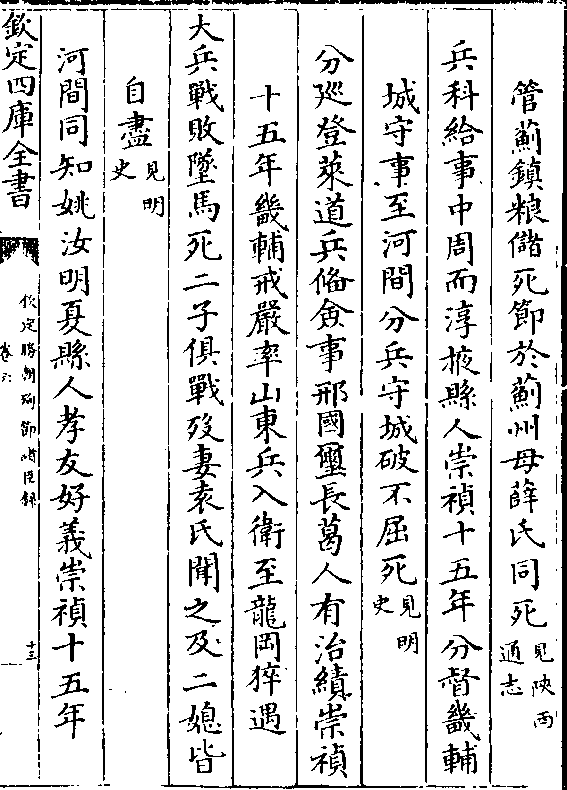 管薊鎮粮儲死節於薊州母薛氏同死見陜西通志
兵科給事中周而淳掖縣人崇禎十五年分督畿輔
城守事至河間分兵守城破不屈死見明史
分廵登萊道兵僃僉事邢國璽長葛人有治績崇禎
十五年畿輔戒嚴率山東兵入衛至龍岡猝遇
大兵戰敗墜馬死二子俱戰歿妻袁氏聞之及二媳皆
自盡見明史
河間同知姚汝明夏縣人孝友好義崇禎十五年
欽定四庫全書
欽定勝朝殉節諸臣錄
卷六
十三